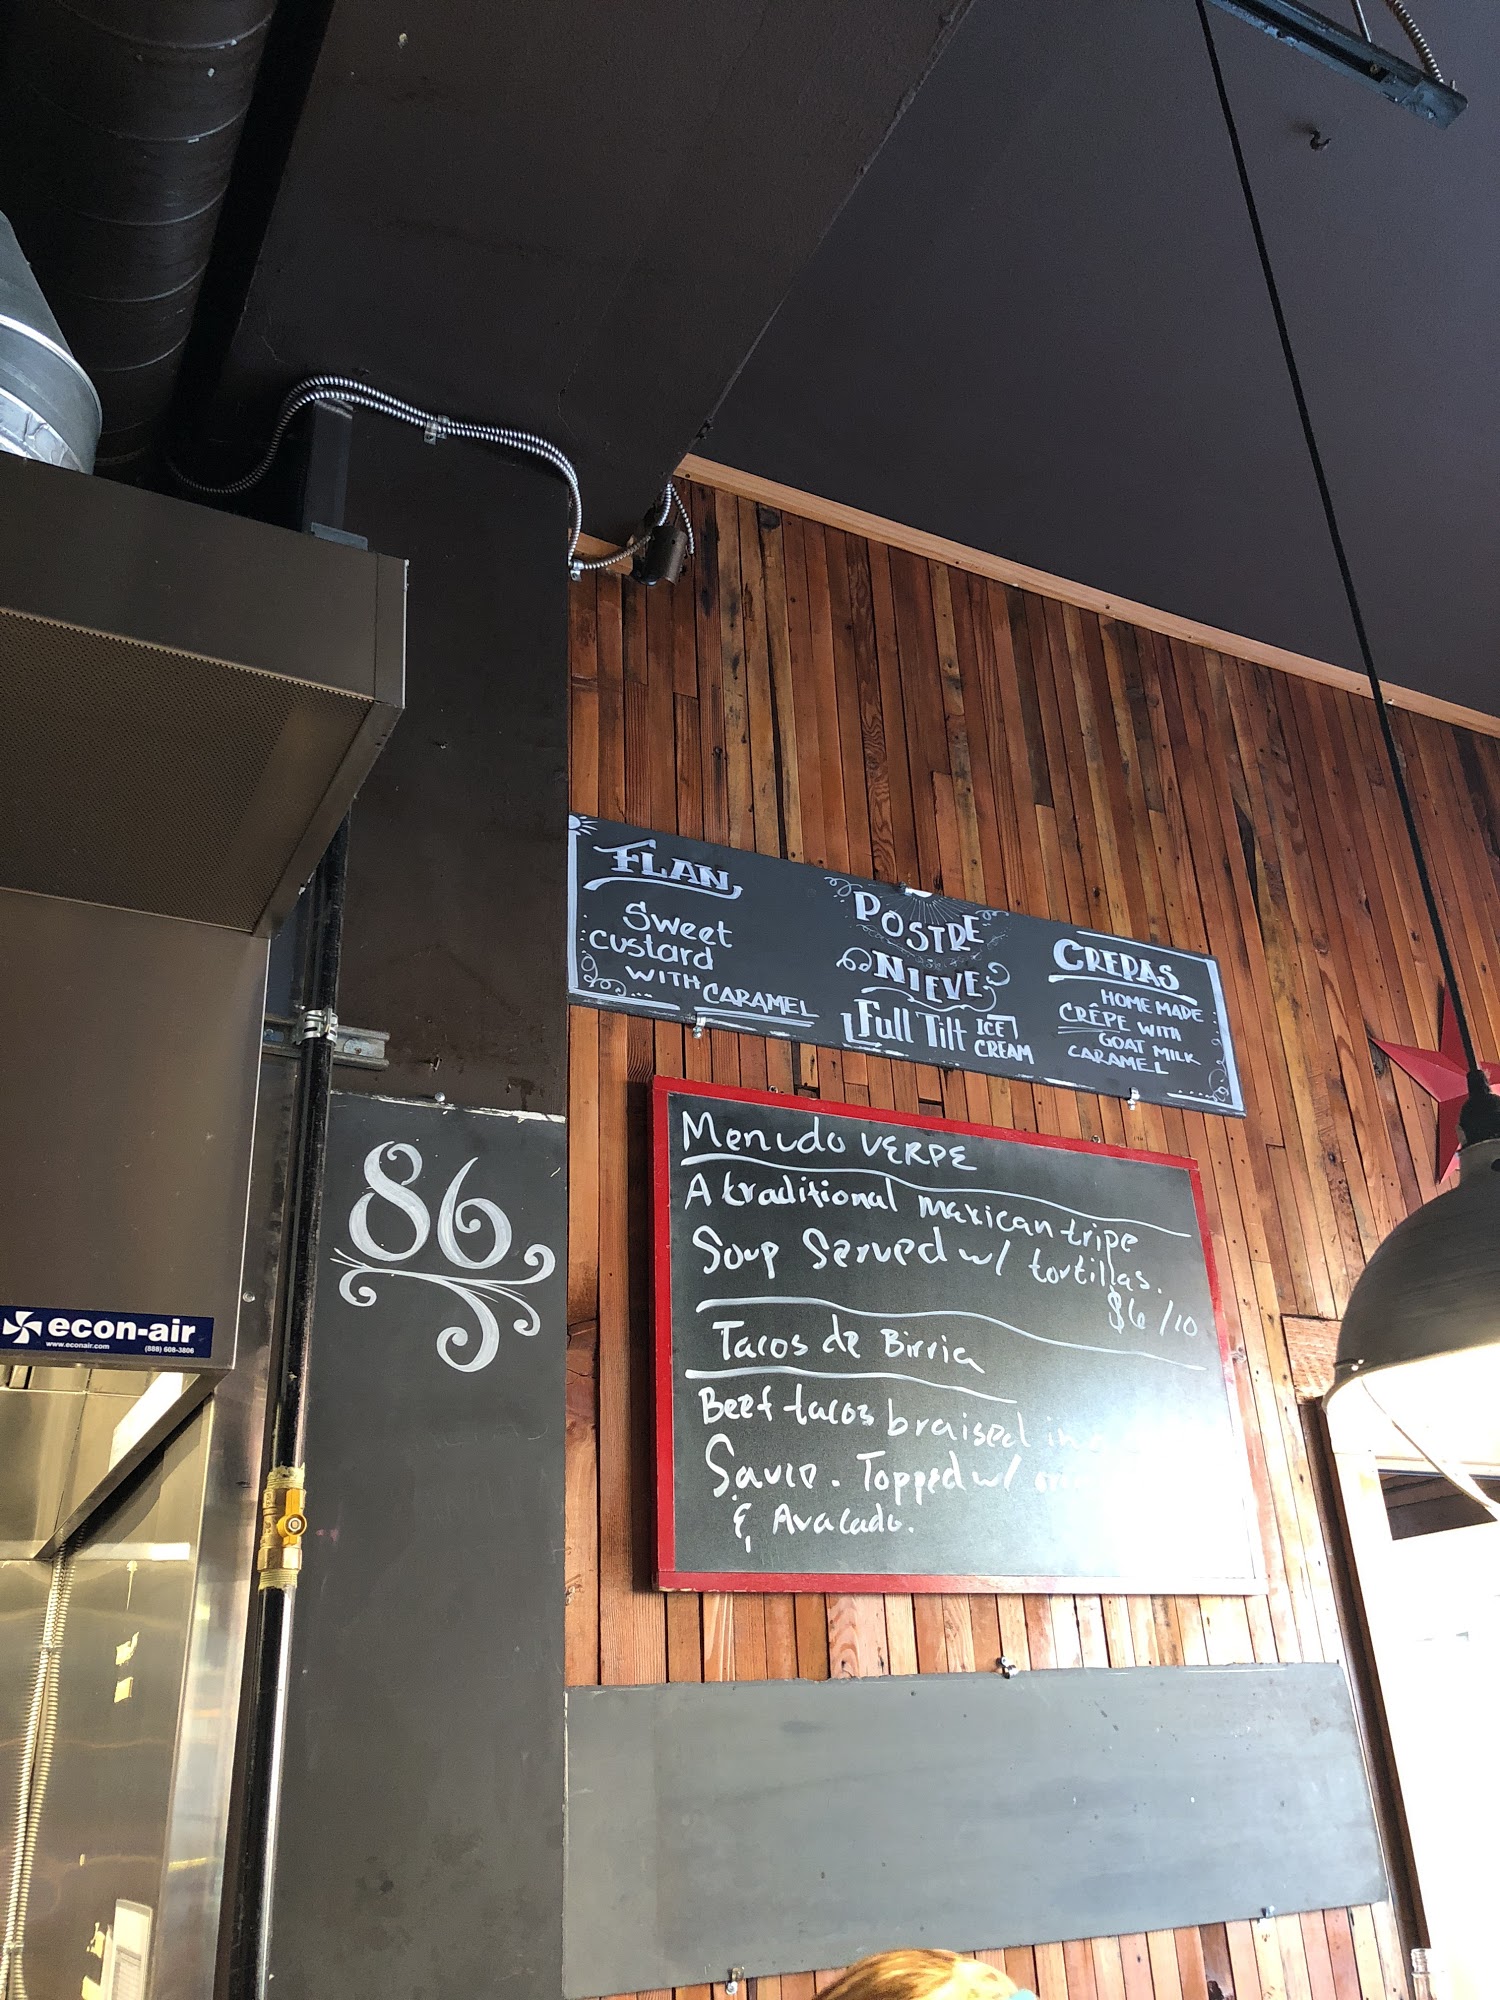 FLAN
Sweet
custard
WITH CARAMEL
POSTRE
NIEVE
Full Tilt ICE CREAM
CREPAS
HOMEMADE
CRÊPE WITH
GOAT MILK
CARAMEL
86
Menudo VERDE
A traditional mexican tripe
Soup Served w/ tortillas.
$6/10
Tacos de Birria
Beef tacos braised in
Topped w/
& Avacado.
econ-air
www.econair.com (888) 608-3806